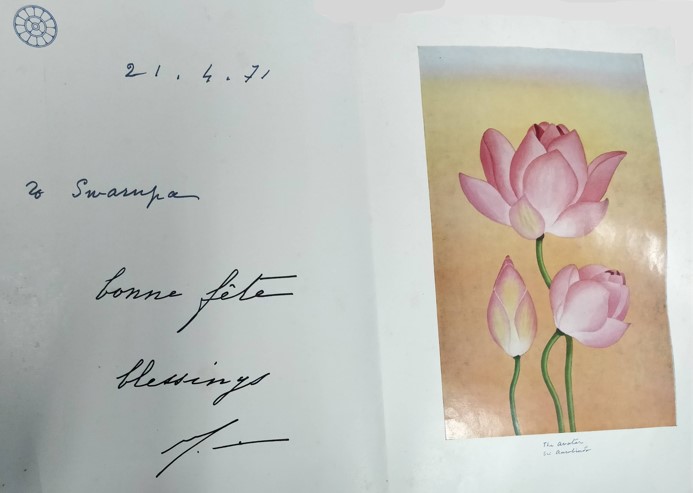 21.4.71
to Swarupa
bonne fête
blessings
The Avatar
Sri Aurobindo